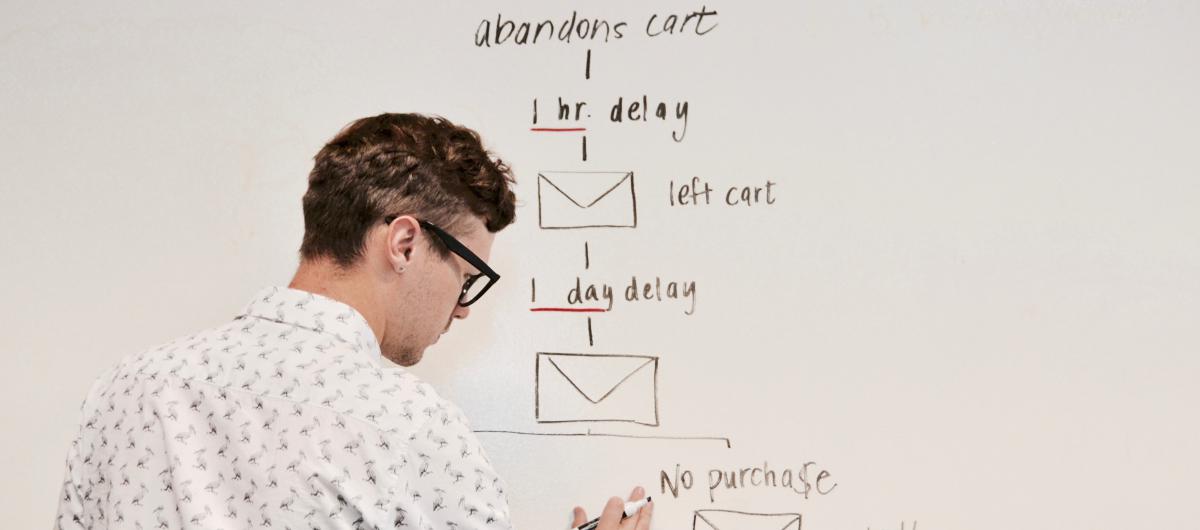 abandons cart
1 hr. delay
left cart
1 day delay
No purchase